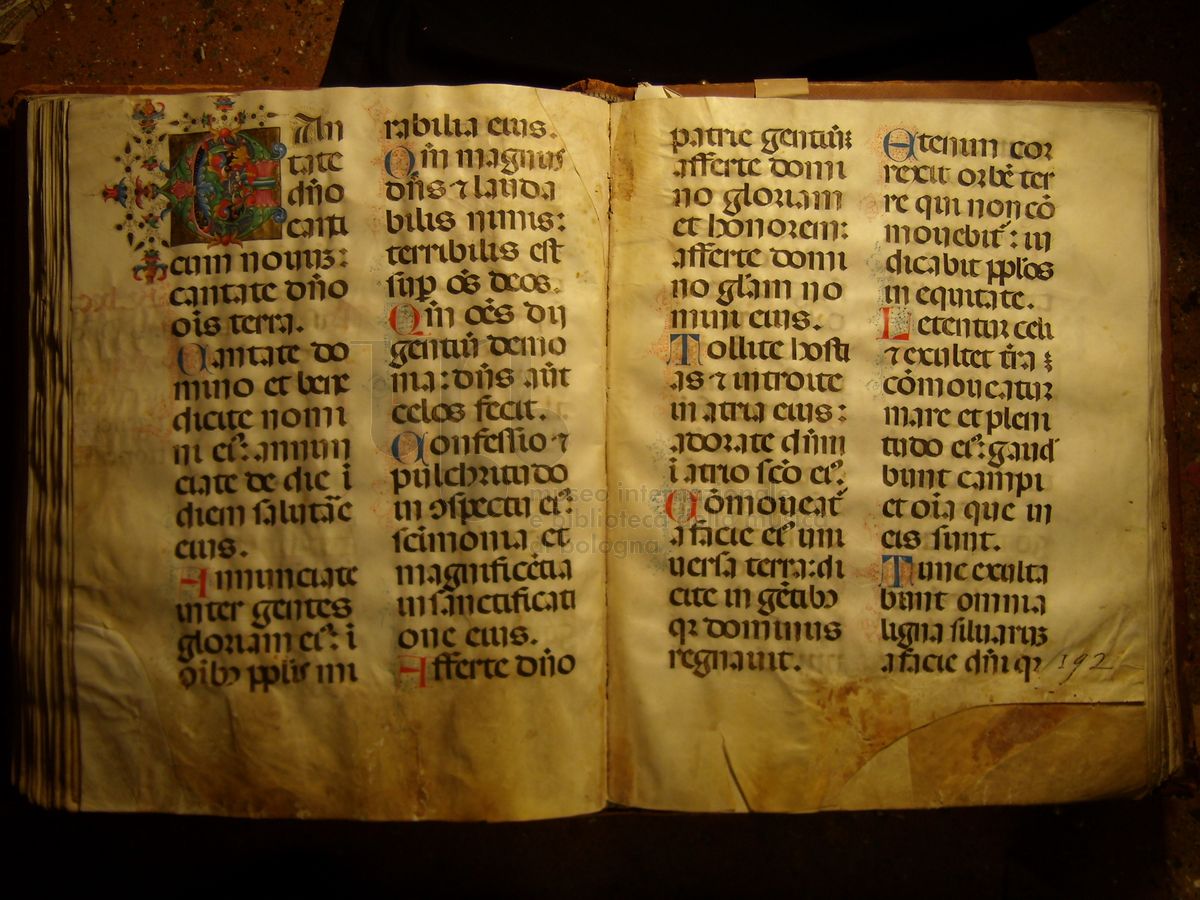 An
tate
dño
canti
cum nouuꝫ:
cantate dño
oĩs terra.
Cantate do
mino et bene
dicite nomi
ni eiꝰ: annun
ciate de die ĩ
diem salutãe
eius.
Annunciate
inter gentes
gloriam eiꝰ: ĩ
oibꝰ ꝓplis mi
rabilia eius.
Qm̃ magnus
dñs ⁊ lauda
bilis nimis:
terribilis est
suꝑ oẽs deos.
Qm̃ oẽs dij
gentiũ demo
nia: dñs aũt
celos fecit.
Confessio ⁊
pulchritudo
in ꝯspectu eiꝰ:
scĩmonia et
magnificẽtia
in sanctificati
one eius.
Afferte dño
patrie gentiũꝫ
afferte domi
no gloriam
et honorem:
afferte domi
no glãm no
mini eius.
Tollite hosti
as ⁊ introite
in atria eius:
adorate dñm
ĩ atrio scõ eiꝰ.
Cõmoueat̃
a facie eiꝰ uni
uersa terra: di
cite in gẽtibꝰ
qꝛ dominus
regnauit.
Etenim cor
rexit orbẽ ter
re qui non cõ
mouebit̃: iu
dicabit ꝓplos
in equitate.
Letentur celi
⁊ exultet tr̃a:
cõmoueatur
mare et pleni
tudo eiꝰ: gaud̃
bunt campi
et oĩa que in
eis sunt.
Tunc exulta
bunt omnia
ligna siluaruꝫ
a facie dñi qꝛ
192
museo internazionale
e biblioteca della musica
di bologna